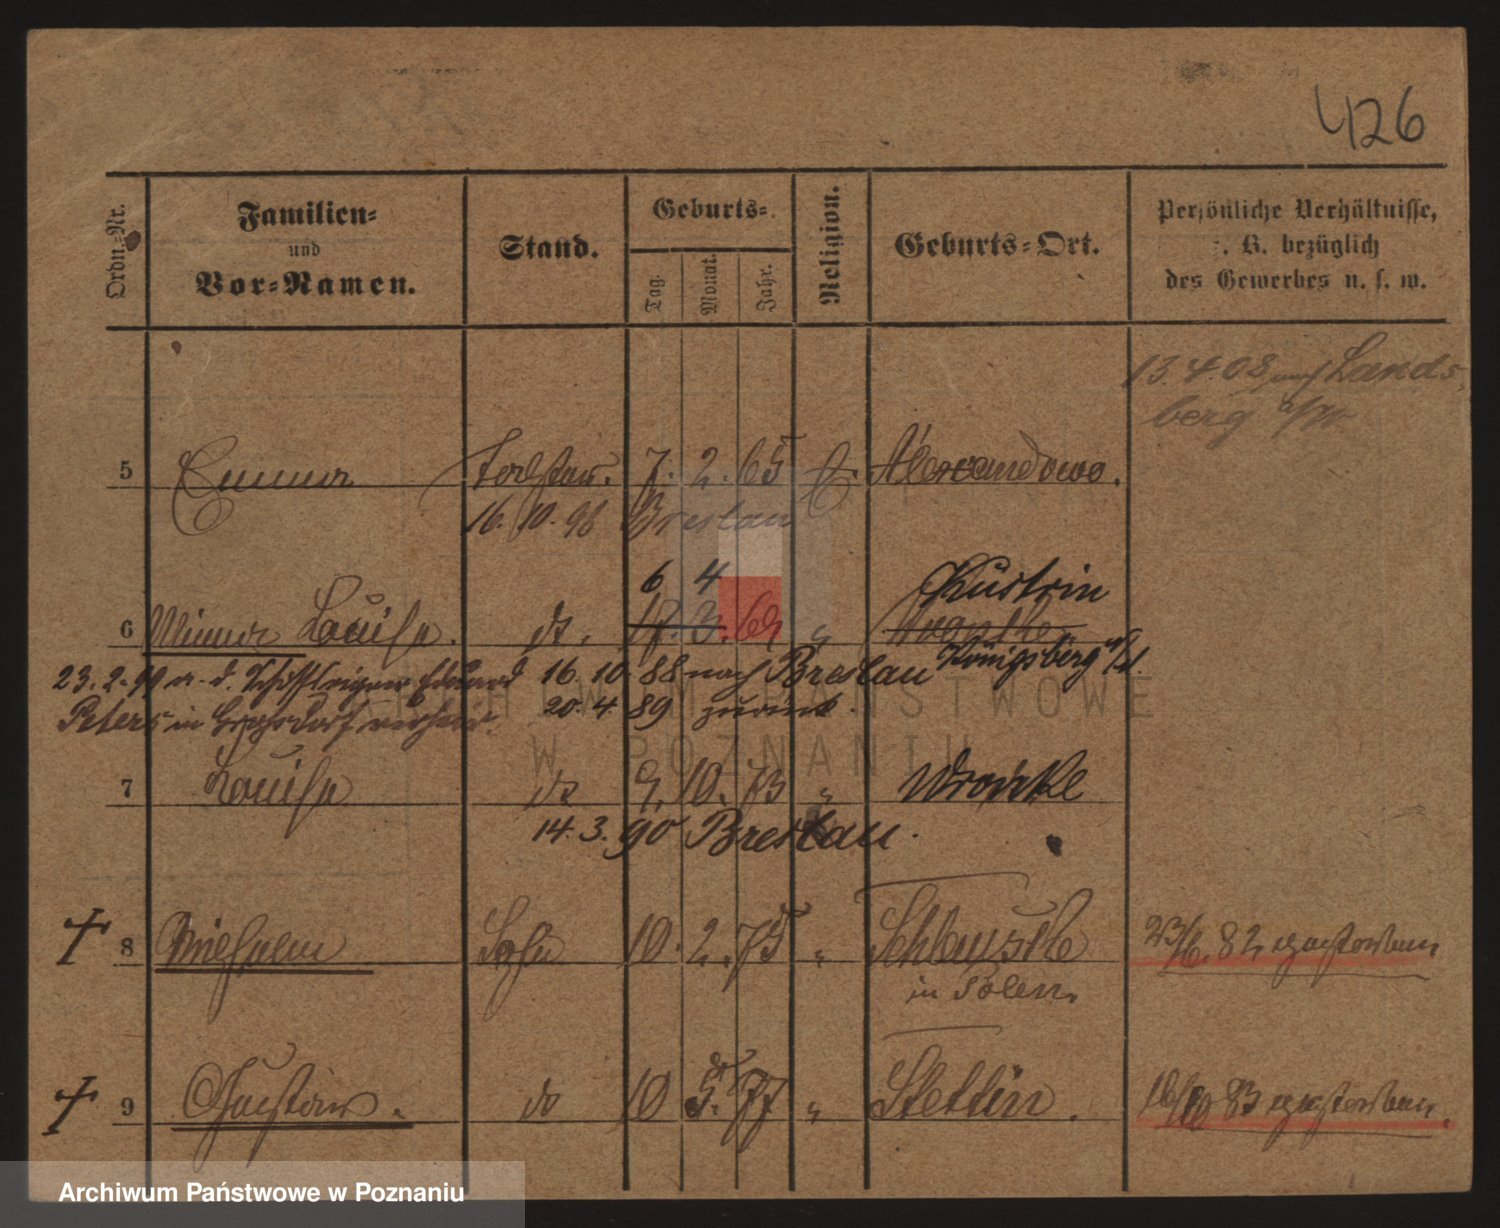 426
Ordn.-Nr.
Familien-
und
Vor-Namen.
Stand.
Geburts-
Tag.
Monat.
Jahr.
Religion.
Geburts-Ort.
Persönliche Verhältnisse,
z. B. bezüglich
des Gewerbes u. s. w.
13.4.08 nach Lands
berg a/W
5 Emma Tochter. 7. 2. 65 E. Alexandowo.
16. 10. 98 Breslau
6 4 Küstrin
6 Minna Louise. do. 17. 8. 69 "
23. 2. 90 a. d. Eduard 16. 10. 88 nach Breslau Königsberg
Peters in verheir. 20. 4. 89 zurück.
ARCHIWUM PAŃSTWOWE
W POZNANIU
7 Louise do 9. 10. 73 " Wronke
14. 3. 90 Breslau.
8 Wilhelm Sohn 10. 2. 75 " 23/6. 82 gestorben
in Polen.
9 Gustav. do 10 5. 77 " Stettin. 16/10 83 gestorben.
Archiwum Państwowe w Poznaniu